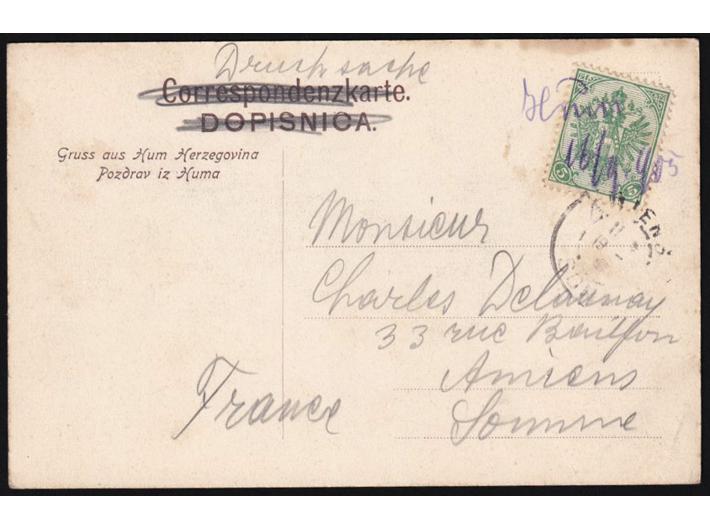 Drucksache
Correspondenzkarte.
DOPISNICA.
Gruss aus Hum Herzegovina
Pozdrav iz Huma
Hum
16/9 905
5 5
Monsieur
Charles Delaunay
33 rue
Amiens
Somme
France